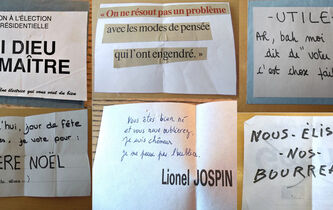 ON À L'ÉLECTION
RÉSIDENTIELLE
I DIEU
MAÎTRE
électrice qui vous veut du bien
« On ne résout pas un problème
avec les modes de pensée
qui l'ont engendré. »
- UTILE
Ah, bah moi
dit du "vote
c'est chose fai
'hui, jour de fête
je vote pour :
ÈRE NOËL
Vous êtes bien né
et vous nous oublierez
je suis chômeur
je ne peux pas l'oublier.
Lionel JOSPIN
NOUS - ÉLIS
- NOS -
BOURREA